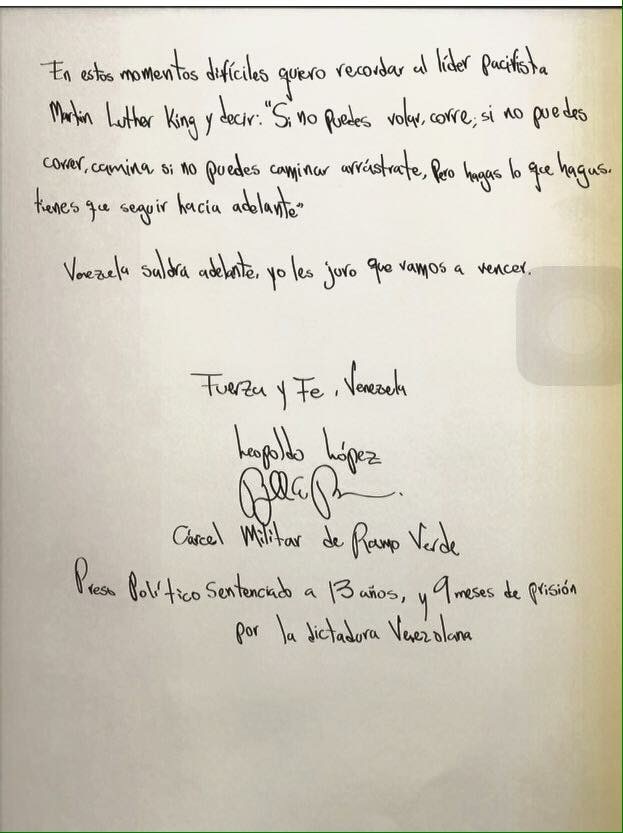 En estos momentos difíciles quiero recordar al líder pacifista
Martin Luther King y decir: "Si no puedes volar, corre; si no puedes
correr, camina si no puedes caminar arrástrate, Pero hagas lo que hagas.
tienes que seguir hacia adelante"
Venezuela saldrá adelante, yo les juro que vamos a vencer.
Fuerza y Fe, Venezuela
Leopoldo López
Cárcel Militar de Ramo Verde
Preso Político Sentenciado a 13 años, y 9 meses de prisión
por la dictadura Venezolana